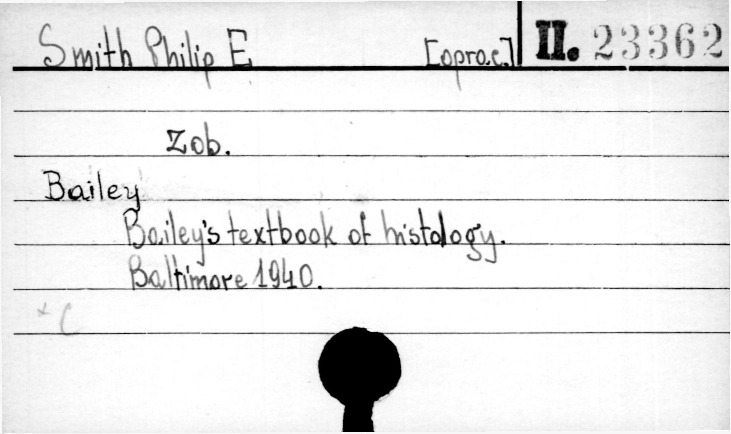 Smith Philip E [oprac.] II. 23362
Zob.
Bailey
Bailey's textbook of histology.
Baltimore 1940.
+ C